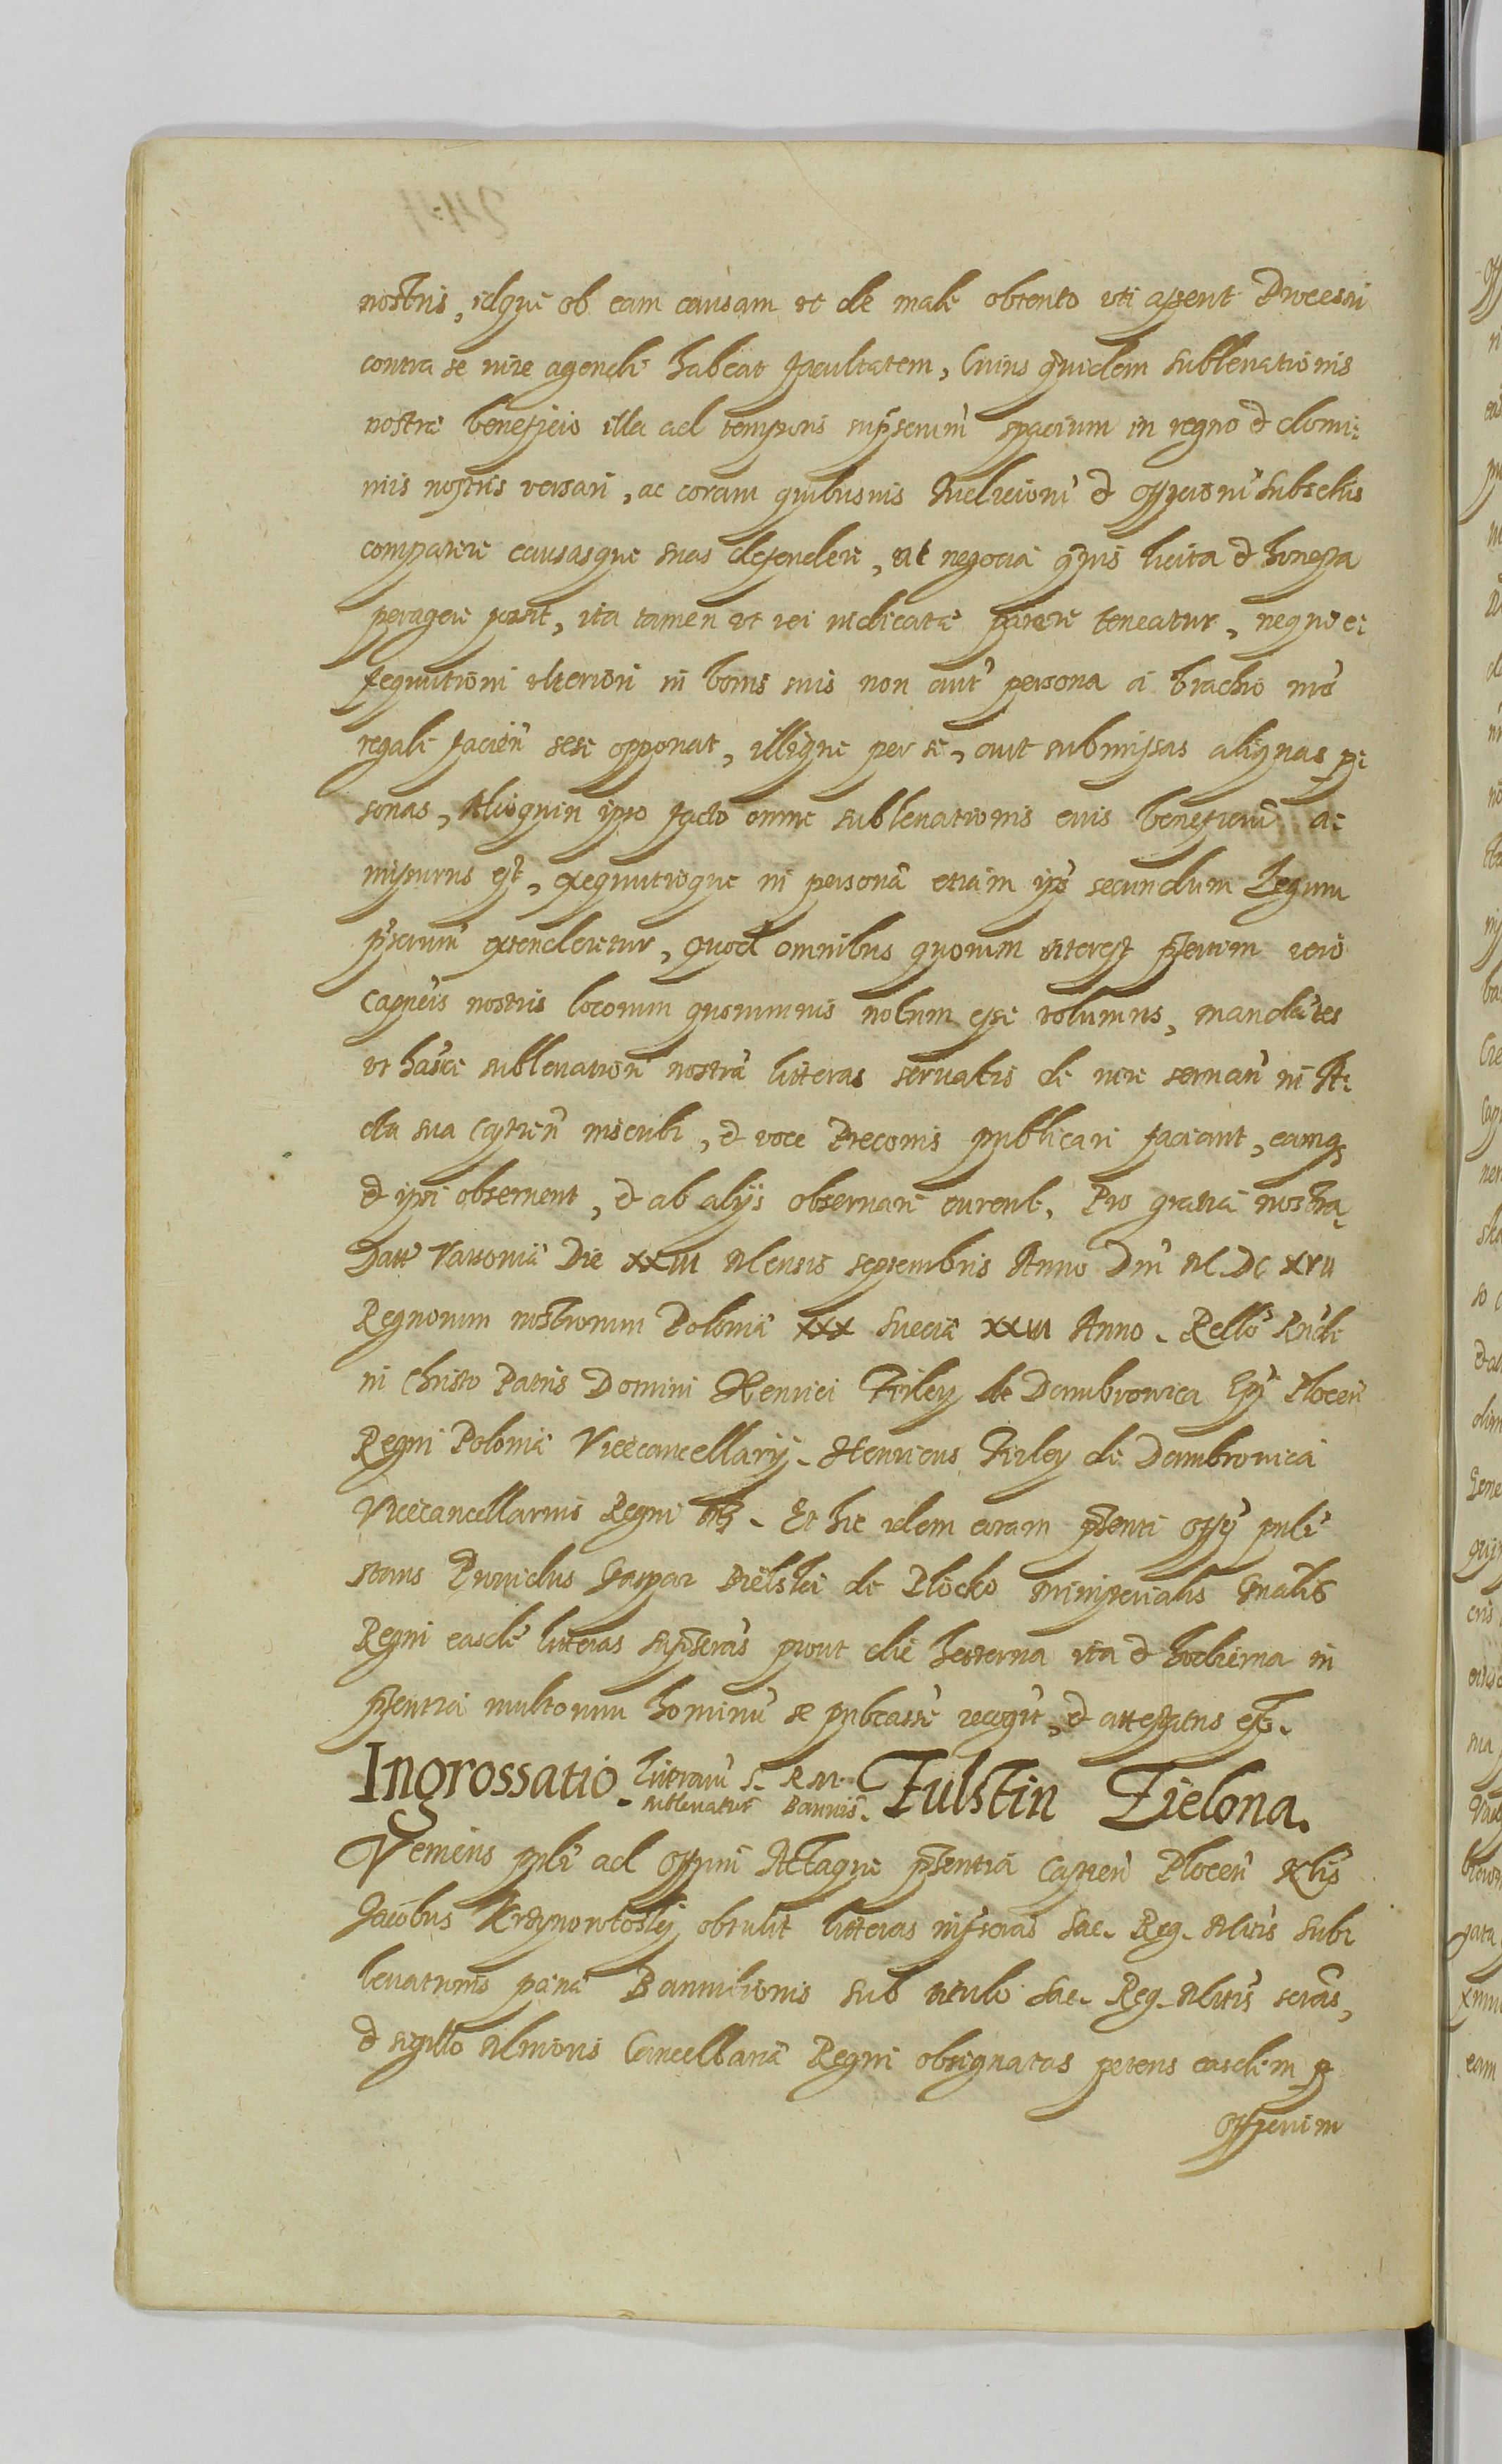 nostris, idque ob eam causam ut de male obtento uti asserit Processu
contra se iure agendi habeat facultatem, Cuius quidem sublevationis
nostræ beneficio illa ad temporis supscriptum spacium in regno & domi:
niis nostris versari, ac coram quibusvis Iudiciorū & officiorū subselliis
comparere causasque suas defendere, ac negocia quævis licita & honesta
peragere possit, ita tamen ut rei iudicatæ parere teneatur, neque e:
xequutioni ulteriori in bonis suis non autē persona a brachio nrō
regali faciēn sese opponat, illique per se, aut submissas aliquas p:
sonas, Alioquin ipso facto omne sublevationis eius beneficiū a:
missurus est, exequutioque in personā etiam ips secundum Legum
pscriptum extenderetur, quod omnibus quorum interest psertim vero
Capneis nostris locorum quorumvis notum esse volumus, mandātes
ut hasce sublevationē nostrā litteras servatis de iure servan in A:
cta sua Captren inscribi, & voce Preconis publicari faciant, eamq
& ipsi observent, & ab alijs observari curent, Pro gratia nostra
Datt Varsoviæ Die XXIII Mensis septembris Anno Dni M.DC XVII
Regnorum nostrorum Poloniæ XXX Sueciæ XXIII Anno. Rello Rndi
in Christo Patris Domini Henrici Firley de Dambrowica Epi Plocen
Regni Poloniæ Vicecancellarij. Henricus Firley de Dambrowica
Vicecancellarius Regni. Et hic idem coram psenti Offo publi
stans Providus Gaspar Bielski de Plocko ministerialis Gnalis
Regni easdē litteras supscriptas prout die hesterna ita & hodierna in
psentia multorum hominū se publicasse recogt, & attestatus est.
Ingrossatio Litterarū S. R. M. Fulstin Zielona.
sublevatur Bannis.
Veniens publi ad Offium Actaque psentia Captren Plocen Nblis
Jacobus Krzynowłoski obtulit litteras infscriptas Sac. Reg. Mttis Sub:
levationis pœnæ Bannitionis sub titulo Sac. Reg. Mttis scriptas,
& sigillo Minoris Cancellariæ Regni obsignatas petens easdem p
Officium